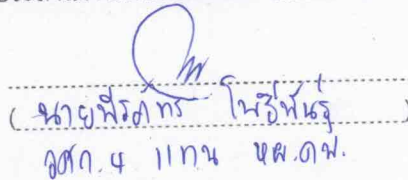 ( นายพีรภัทร โพธิ์พันธุ์ )
วศก. 4 แทน หผ.ดพ.